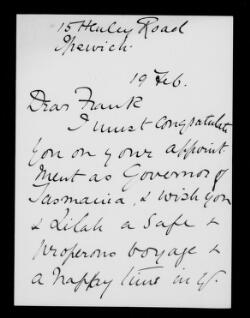 15 Henley Road
Ipswich.
19 Feb.
Dear Frank
I must congratulate
you on your appoint
ment as Governor of
Tasmania, & wish you
& Lilah a safe &
prosperous voyage &
a happy time in